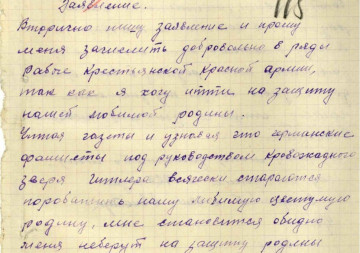 Заявление.
115
Вторично пишу заявление и прошу
меня зачислить добровольно в ряды
Рабоче Крестьянской Красной армии,
так как я хочу итти на защиту
нашей любимой родины.
Читая газеты и узновая что германские
фашисты под руководством кровожадного
зверя гитлера всячески стараются
поработить нашу любимую цветущую
родину, мне становится обидно
меня неберут на защиту родины